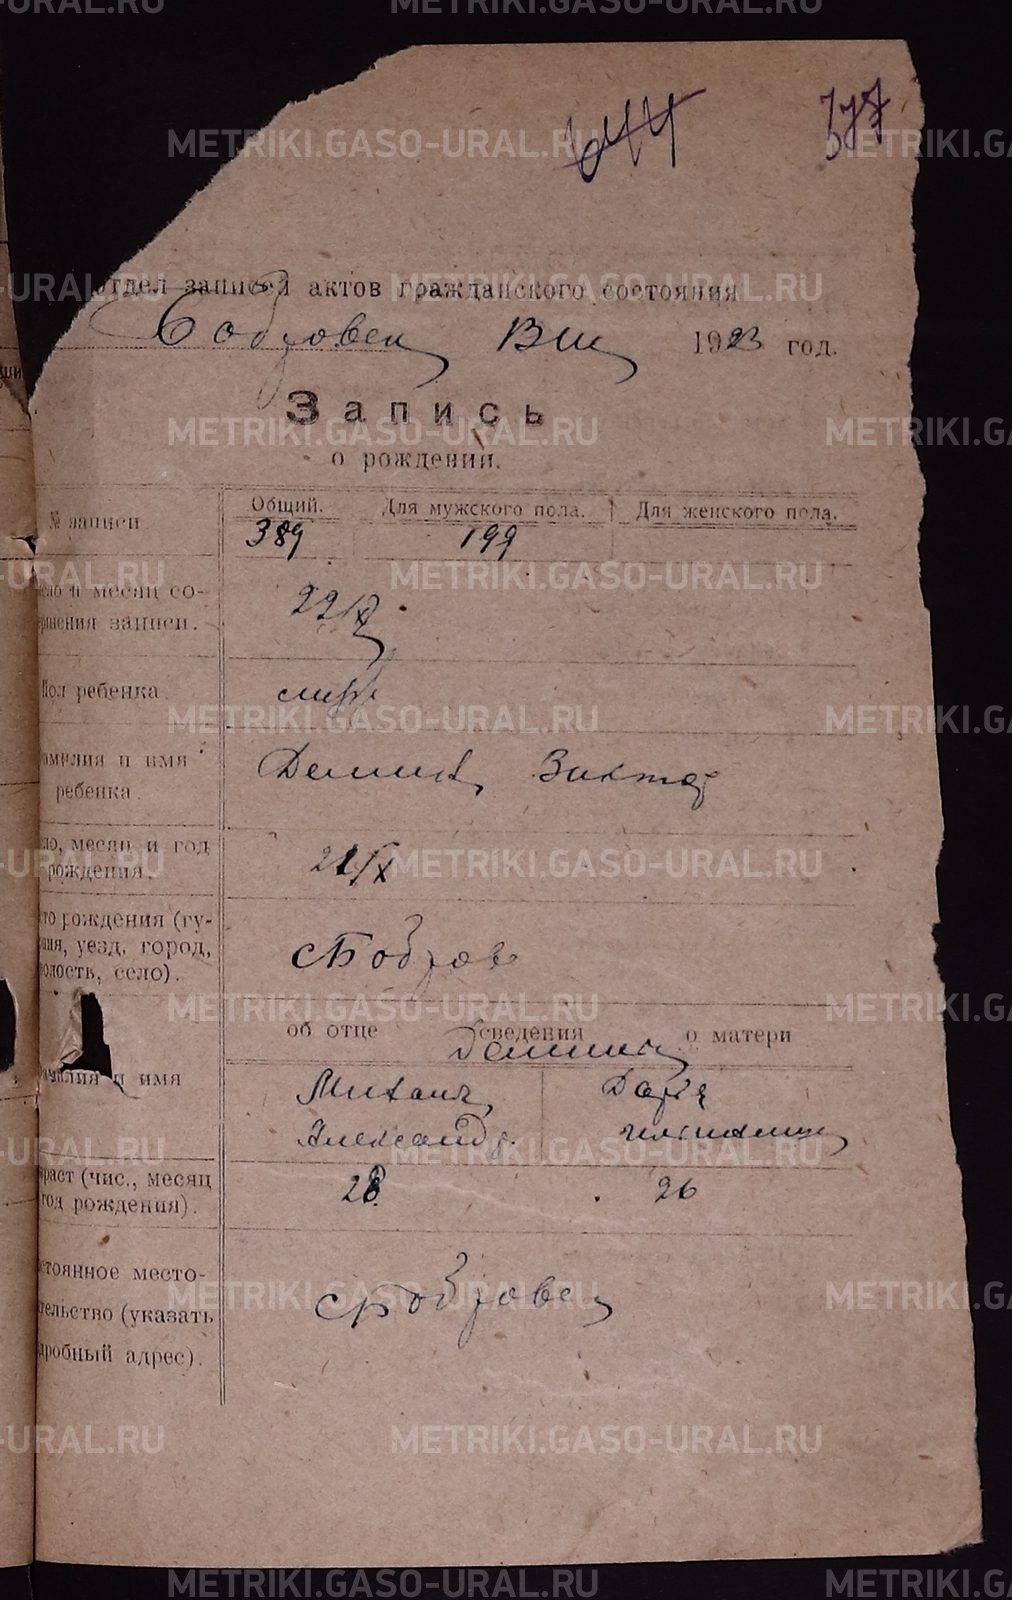 644 377
отдел записей актов гражданского состояния
Бобровск Вик 1923 год.
Запись
о рождении.
№ записи Общий. Для мужского пола. Для женского пола.
389 199
число и месяц со-
вершения записи. 22/X
Пол ребенка муж
Фамилия и имя Демин Виктор
ребенка.
число, месяц и год 21/X
рождения.
место рождения (гу-
берния, уезд, город, с Бобров
волость, село).
об отце сведения о матери
Демины
Фамилия и имя Михаил Дарья
Александр.
возраст (чис., месяц 28 26
год рождения).
постоянное место-
жительство (указать
подробный адрес).
METRIKI.GASO-URAL.RU